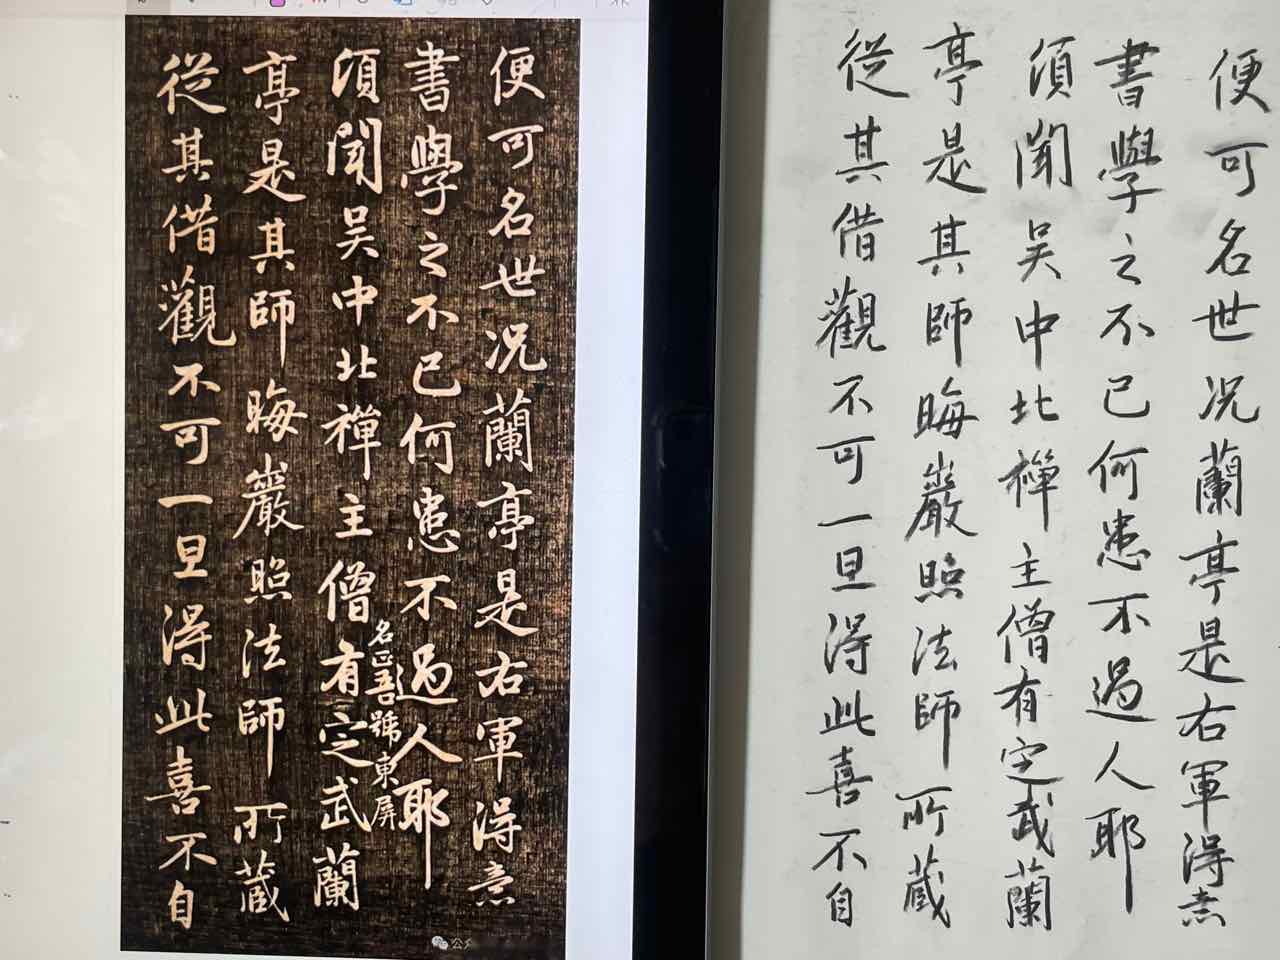 便可名世况蘭亭是右軍得意
書學之不已何患不過人耶
名正吾號東屏
須聞吳中北禪主僧有定武蘭
亭是其師晦巖照法師所蔵
從其借觀不可一旦得此喜不自
便可名世况蘭亭是右軍得意
書學之不已何患不過人耶
須聞吳中北禪主僧有定武蘭
亭是其師晦巖照法師所蔵
從其借觀不可一旦得此喜不自